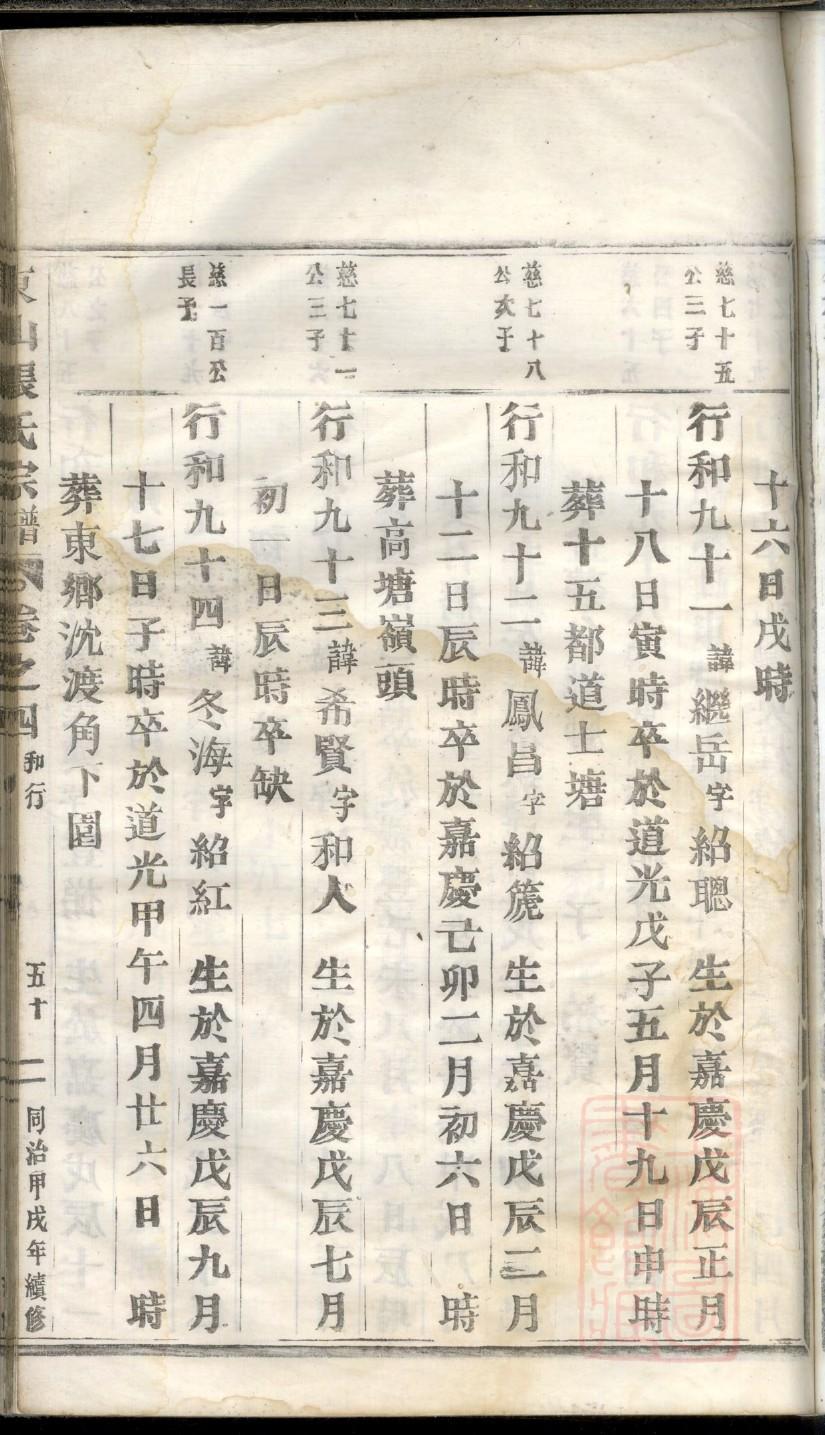 十六日戌時
慈七十五
公三子
行和九十一諱繼岳字紹聰 生於嘉慶戊辰正月
十八日寅時卒於道光戊子五月十九日申時
葬十五都道士塘
慈七十八
公次子
行和九十二諱鳳昌字紹箎 生於嘉慶戊辰二月
十二日辰時卒於嘉慶己卯二月初六日 時
葬高塘嶺頭
慈七十一
公三子
行和九十三諱希賢字和人 生於嘉慶戊辰七月
初一日辰時卒缺
慈一百公
長子
行和九十四諱冬海字紹紅 生於嘉慶戊辰九月
十七日子時卒於道光甲午四月廿六日 時
葬東鄉沈渡角下園
東山張氏宗譜 卷之四 和行 五十二 同治甲戌年續修